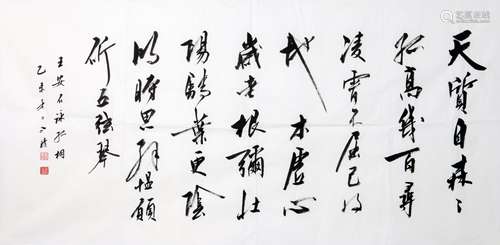 天質自森〻
孤高幾百尋
凌霄不屈己得
地本虛心
歲老根彌壯
陽驕葉更陰
明時思解慍願
斫五弦琴
王安石詠孤桐
乙未年